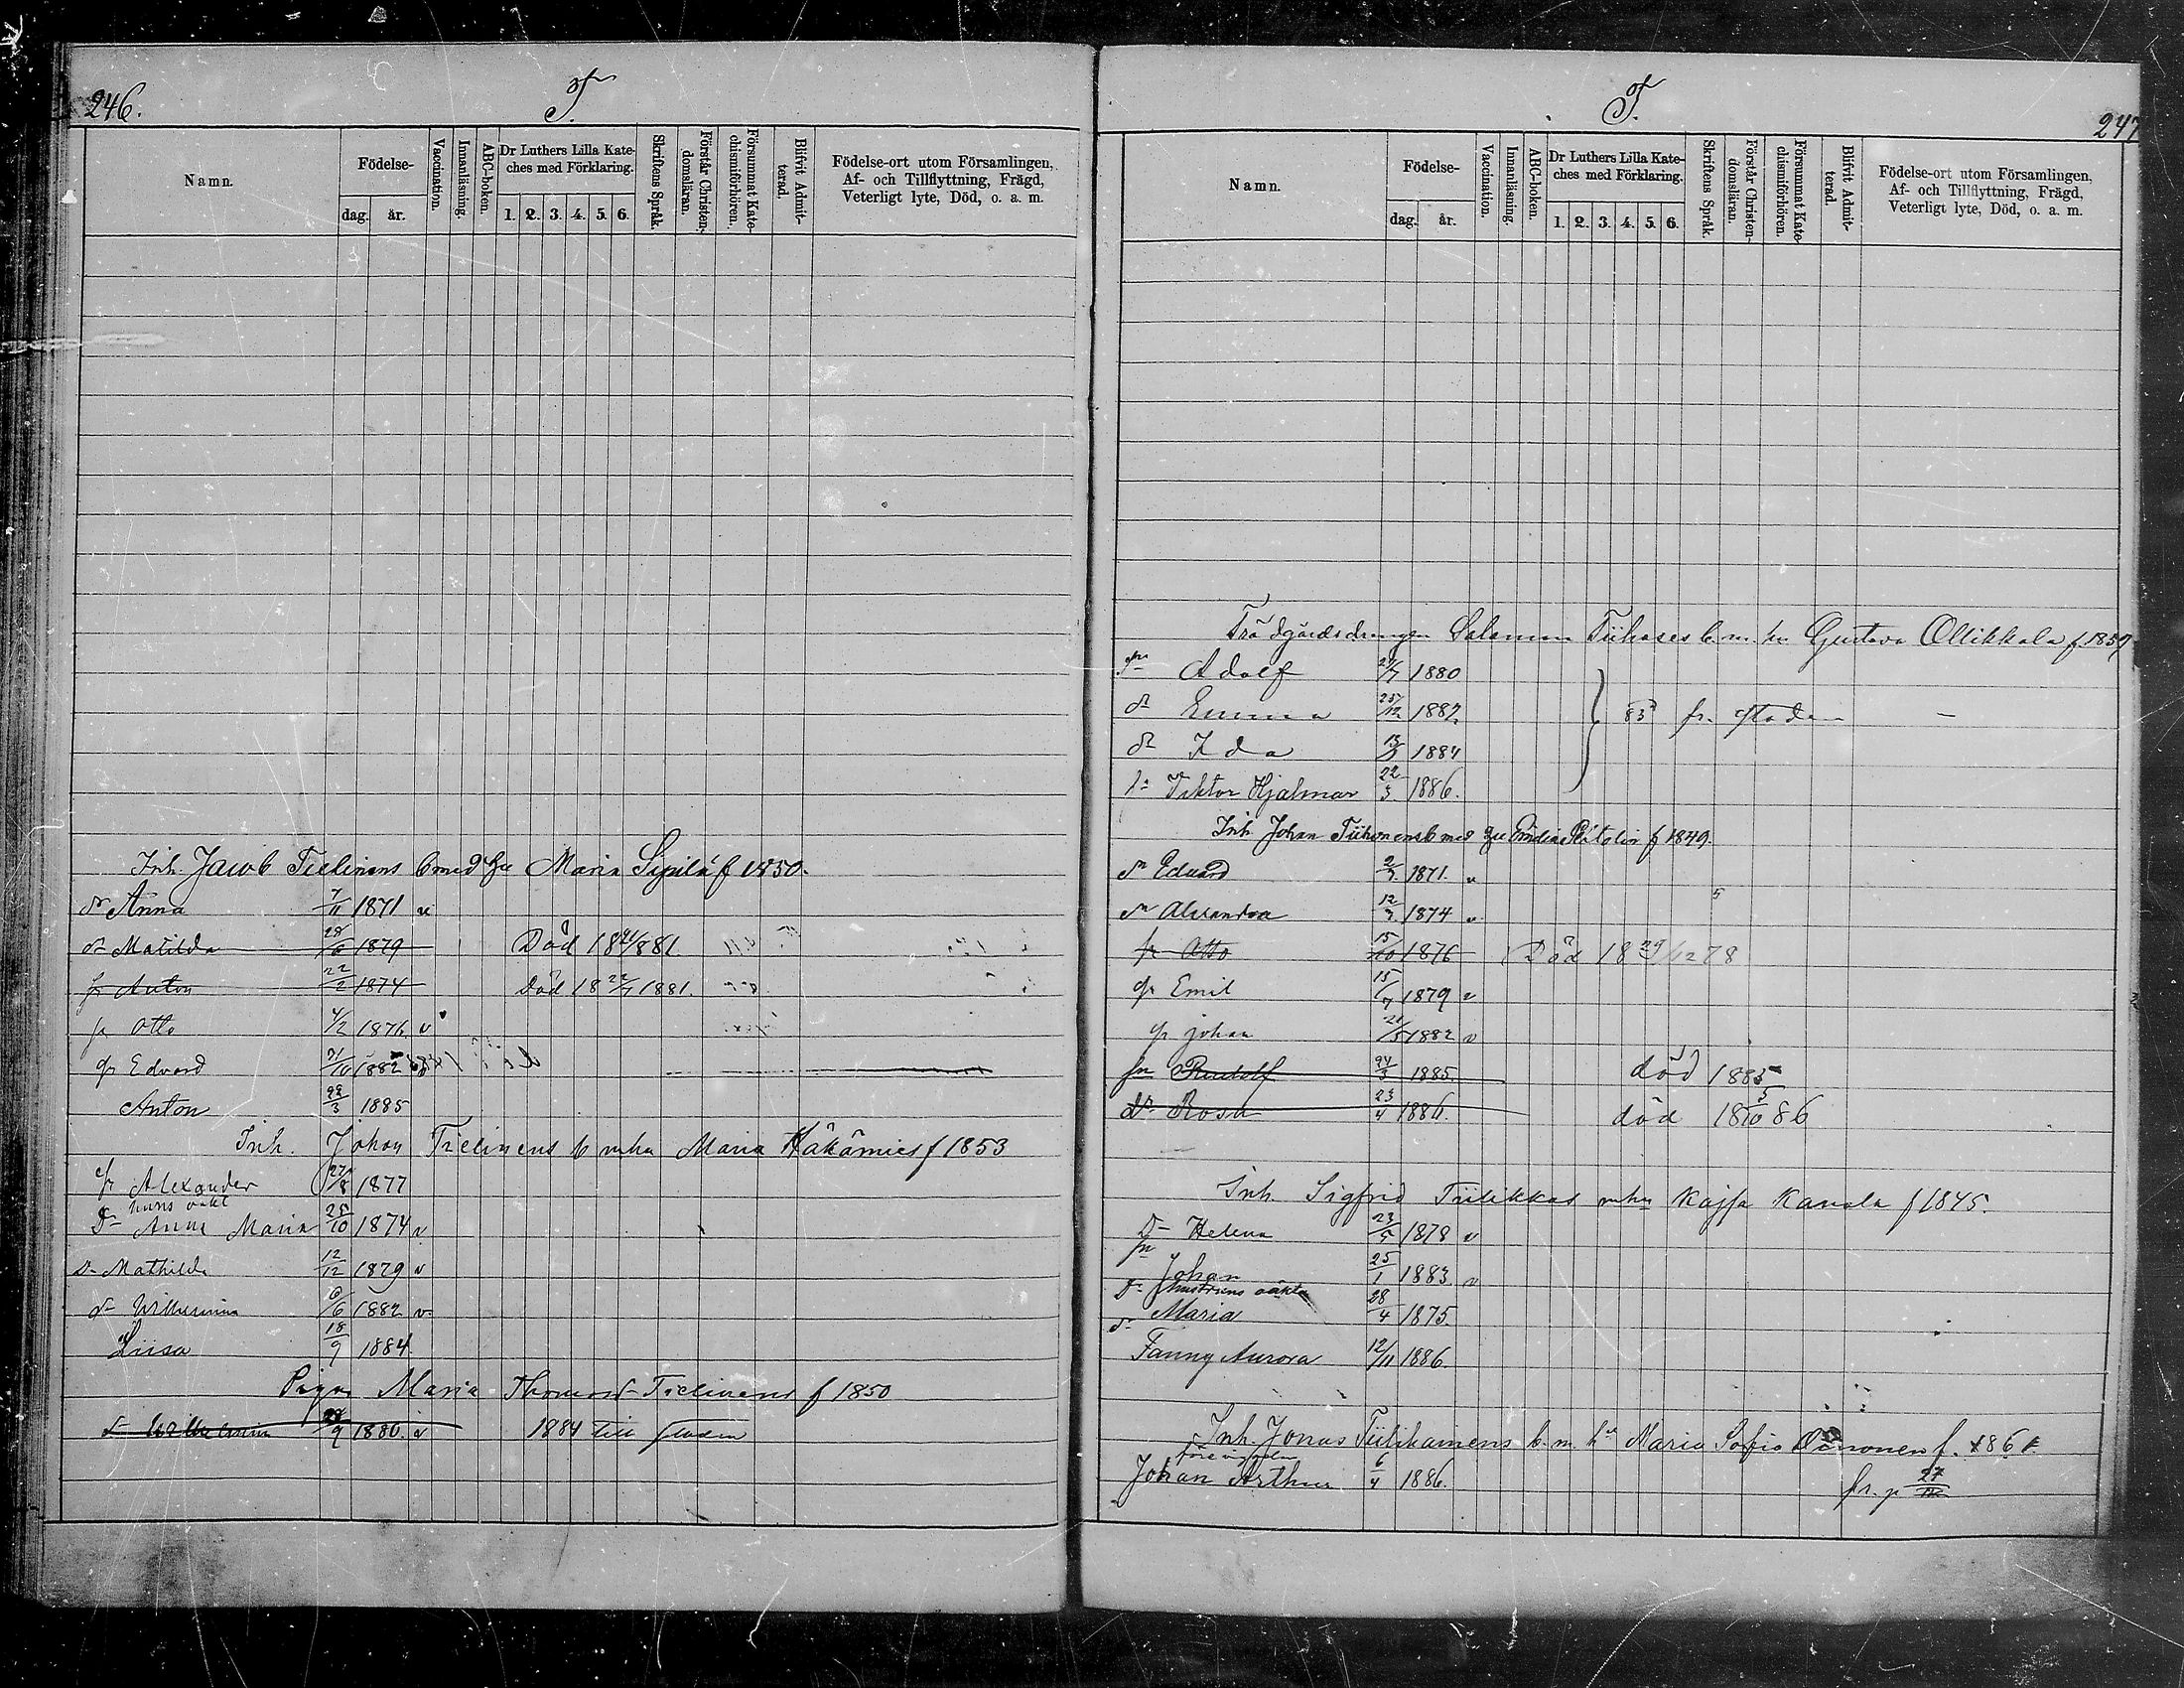 246.
T.
Namn.
Födelse-
dag. år.
Vaccination.
Innanläsning.
ABC-boken.
Dr Luthers Lilla Kate-
ches med Förklaring.
1. 2. 3. 4. 5. 6.
Skriftens Språk.
Förstår Christen-
domsläran.
Försummat Kate-
chismiförhören.
Blifvit Admit-
terad.
Födelse-ort utom Församlingen,
Af- och Tillflyttning, Frägd,
Veterligt lyte, Död, o. a. m.
Inh. Jacob Tielinens b med hu Maria Sipilä f 1850.
dr Anna 7/11 1871 v
dr Matilda 28/6 1879 Död 18 /881.
sr Anton 22/2 1874 Död 18 22/7 1881.
sr Otto 4/2 1876 v
sr Edvard 21/10 1882
Anton 22/3 1885
Inh. Johan Tielinens b mhu Maria Häkämies f 1853
sr Alexander 27/8 1877
huns oäkt
Dr Anna Maria 25/10 1874 v
Dr Mathilda 12/12 1879 v
dr Wilhelmina 6/6 1882 v
Liisa 18/9 1884
Pigan Maria Thomasd. Tielinens f 1850
dr Wilhelmina /9 1880. v 1884 till staden
T.
247
Namn.
Födelse-
dag. år.
Vaccination.
Innanläsning.
ABC-boken.
Dr Luthers Lilla Kate-
ches med Förklaring.
1. 2. 3. 4. 5. 6.
Skriftens Språk.
Förstår Christen-
domsläran.
Försummat Kate-
chismiförhören.
Blifvit Admit-
terad.
Födelse-ort utom Församlingen,
Af- och Tillflyttning, Frägd,
Veterligt lyte, Död, o. a. m.
Trädgårdsdrängen Salomon Tiihoses b. m. hu Gustava Ollikkala f. 1859
sn Adolf 29/7 1880
dr Emma 25/12 1882 83 fr. staden
dr Ida 13/3 1884
sn Viktor Hjalmar 22/3 1886.
Inh. Johan Tiihonens b med hu f 1849.
sn Eduard 2/7 1871. v
dr Alexandra 12/7 1874 v 5
sr Otto 15/10 1876 Död 18 29/12 78
sr Emil 15/7 1879 v
sr Johan 21/5 1882 v
sn Rudolf 24/3 1885. död 1885
dr Rosa 23/4 1886. död 18 5/10 86
Inh. Sigfrid Tiilikkas mhu Kajsa Kanala f 1845.
Dr Helena 23/5 1878 v
sn Johan 25/1 1883 v
hustruns oäkta
Dr Maria 28/4 1875.
dr Fanny Aurora 12/11 1886.
Inh. Jonas Tiilikainens b. m. hu Maria Sofia f. 186
före vigseln
Johan Arthur 6/4 1886. fr. p 27/12